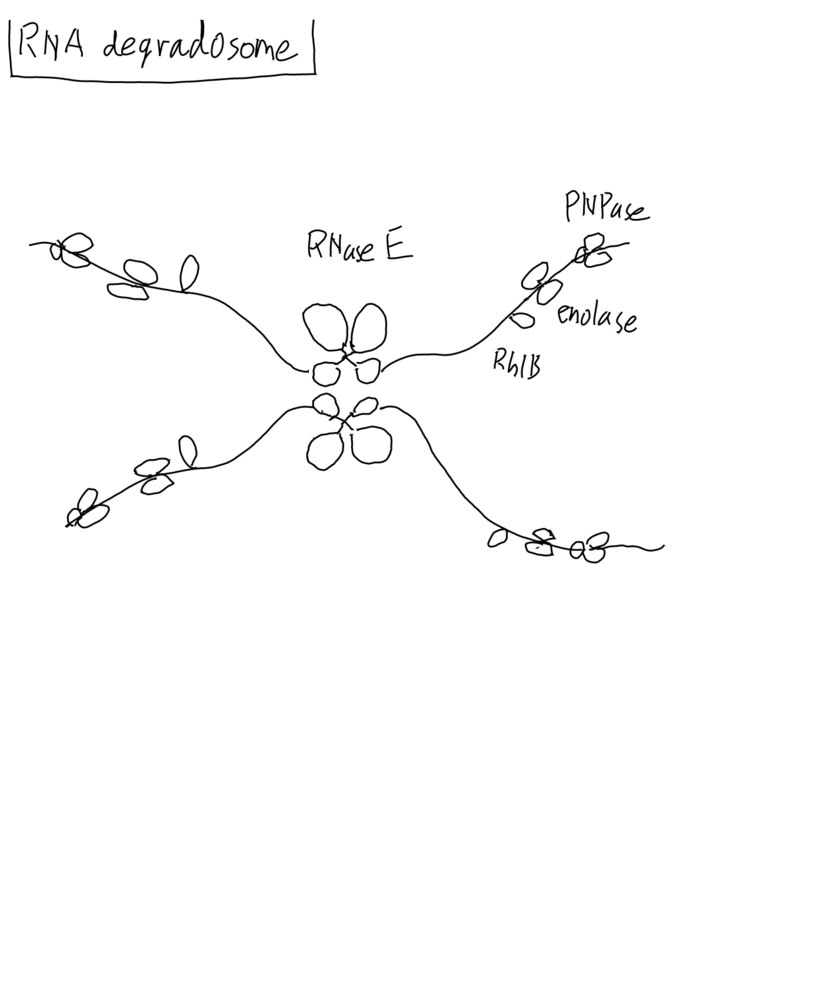 RNA degradosome
PNPase
RNase E
enolase
RhlB